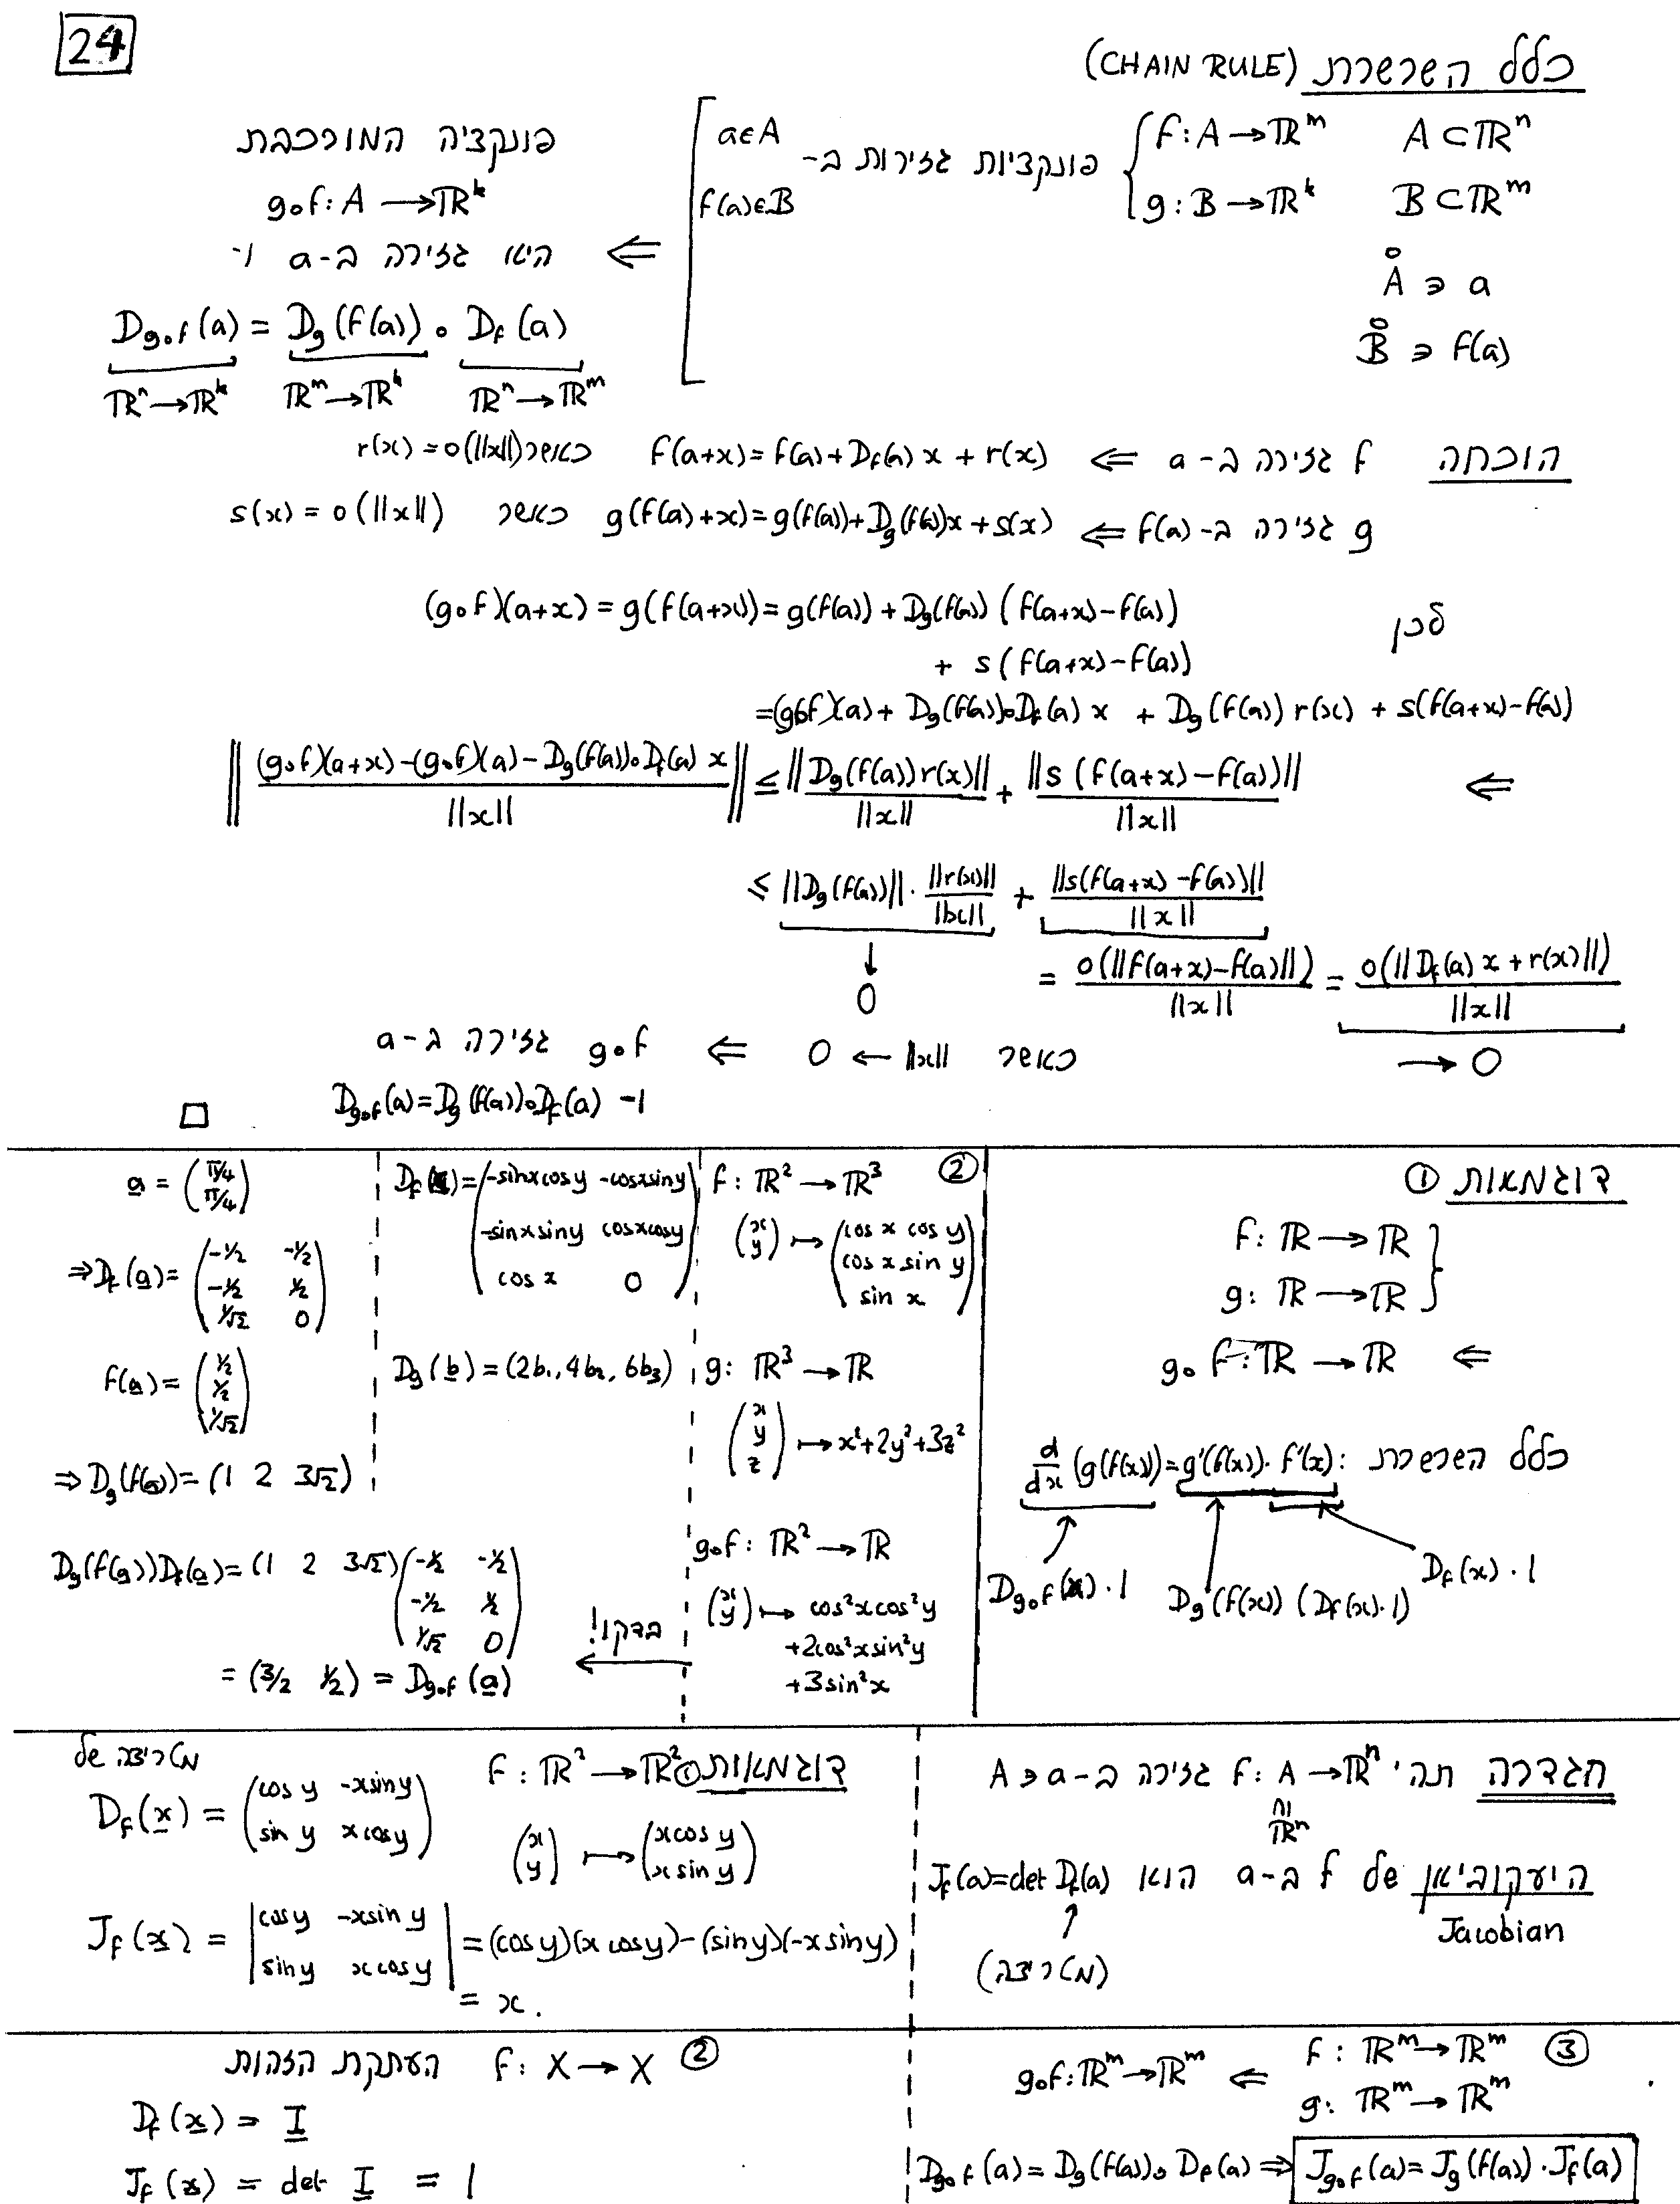 24
כלל השרשרת (CHAIN RULE)
A⊂ℝⁿ f: A→ℝᵐ
B⊂ℝᵐ g: B→ℝᵏ
פונקציות גזירות ב-
a∈A
f(a)∈B
Å ∋ a
B̊ ∋ f(a)
⇐
פונקציה המורכבת
g∘f: A→ℝᵏ
היא גזירה ב-a ו-
D_{g∘f}(a) = D_g(f(a)) ∘ D_f(a)
ℝⁿ→ℝᵏ ℝᵐ→ℝᵏ ℝⁿ→ℝᵐ
הוכחה f גזירה ב-a ⇐ f(a+x)=f(a)+D_f(a)x+r(x) כאשר r(x)=o(||x||)
g גזירה ב-f(a) ⇐ g(f(a)+x)=g(f(a))+D_g(f(a))x+s(x) כאשר s(x)=o(||x||)
לכן (g∘f)(a+x)=g(f(a+x))=g(f(a))+D_g(f(a))(f(a+x)-f(a))
+ s(f(a+x)-f(a))
=(g∘f)(a)+D_g(f(a))∘D_f(a) x + D_g(f(a)) r(x) + s(f(a+x)-f(a))
⇐ ||((g∘f)(a+x)-(g∘f)(a)-D_g(f(a))∘D_f(a) x)/||x|| || ≤ ||D_g(f(a))r(x)||/||x|| + ||s(f(a+x)-f(a))||/||x||
≤ ||D_g(f(a))||·||r(x)||/||x|| + ||s(f(a+x)-f(a))||/||x||
↓ 0
= o(||f(a+x)-f(a)||)/||x|| = o(||D_f(a)x+r(x)||)/||x||
→ 0
כאשר ||x|| → 0 ⇐ g∘f גזירה ב-a
ו- D_{g∘f}(a)=D_g(f(a))∘D_f(a)
□
דוגמאות ①
f: ℝ→ℝ
g: ℝ→ℝ
⇐ g∘f: ℝ→ℝ
כלל השרשרת: d/dx(g(f(x)))=g'(f(x))·f'(x)
D_{g∘f}(x)·1 D_g(f(x))(D_f(x)·1) D_f(x)·1
②
f: ℝ²→ℝ³
(x y) ↦ (cos x cos y, cos x sin y, sin x)
g: ℝ³→ℝ
(x y z) ↦ x²+2y²+3z²
g∘f: ℝ²→ℝ
(x y) ↦ cos²x cos²y
+2cos²x sin²y
+3sin²x
בדקו!
D_f(x)= (-sinxcosy -cosxsiny
-sinxsiny cosxcosy
cos x 0)
D_g(b)=(2b₁, 4b₂, 6b₃)
a = (π/4 π/4)
⇒D_f(a)= (-½ -½
-½ ½
1/√2 0)
f(a)= (½ ½ 1/√2)
⇒D_g(f(a))=(1 2 3√2)
D_g(f(a))D_f(a)=(1 2 3√2) (-½ -½
-½ ½
1/√2 0)
= (3/2 ½) = D_{g∘f}(a)
הגדרה תהי f: A→ℝⁿ גזירה ב-a∈A
∩| ℝⁿ
היעקוביאן של f ב-a הוא J_f(a)=det D_f(a)
Jacobian
(מטריצה)
דוגמאות ① f: ℝ²→ℝ²
(x y) ↦ (xcos y, xsin y)
מטריצה של
D_f(x) = (cos y -xsiny
sin y xcosy)
J_f(x) = |cosy -xsin y
siny xcosy| =(cosy)(xcosy)-(siny)(-xsiny)
= x.
② f: X→X העתקת הזהות
D_f(x) = I
J_f(x) = det I = 1
③ f: ℝᵐ→ℝᵐ
g: ℝᵐ→ℝᵐ
⇐ g∘f:ℝᵐ→ℝᵐ
D_{g∘f}(a)=D_g(f(a))∘D_f(a) ⇒ J_{g∘f}(a)=J_g(f(a))·J_f(a)